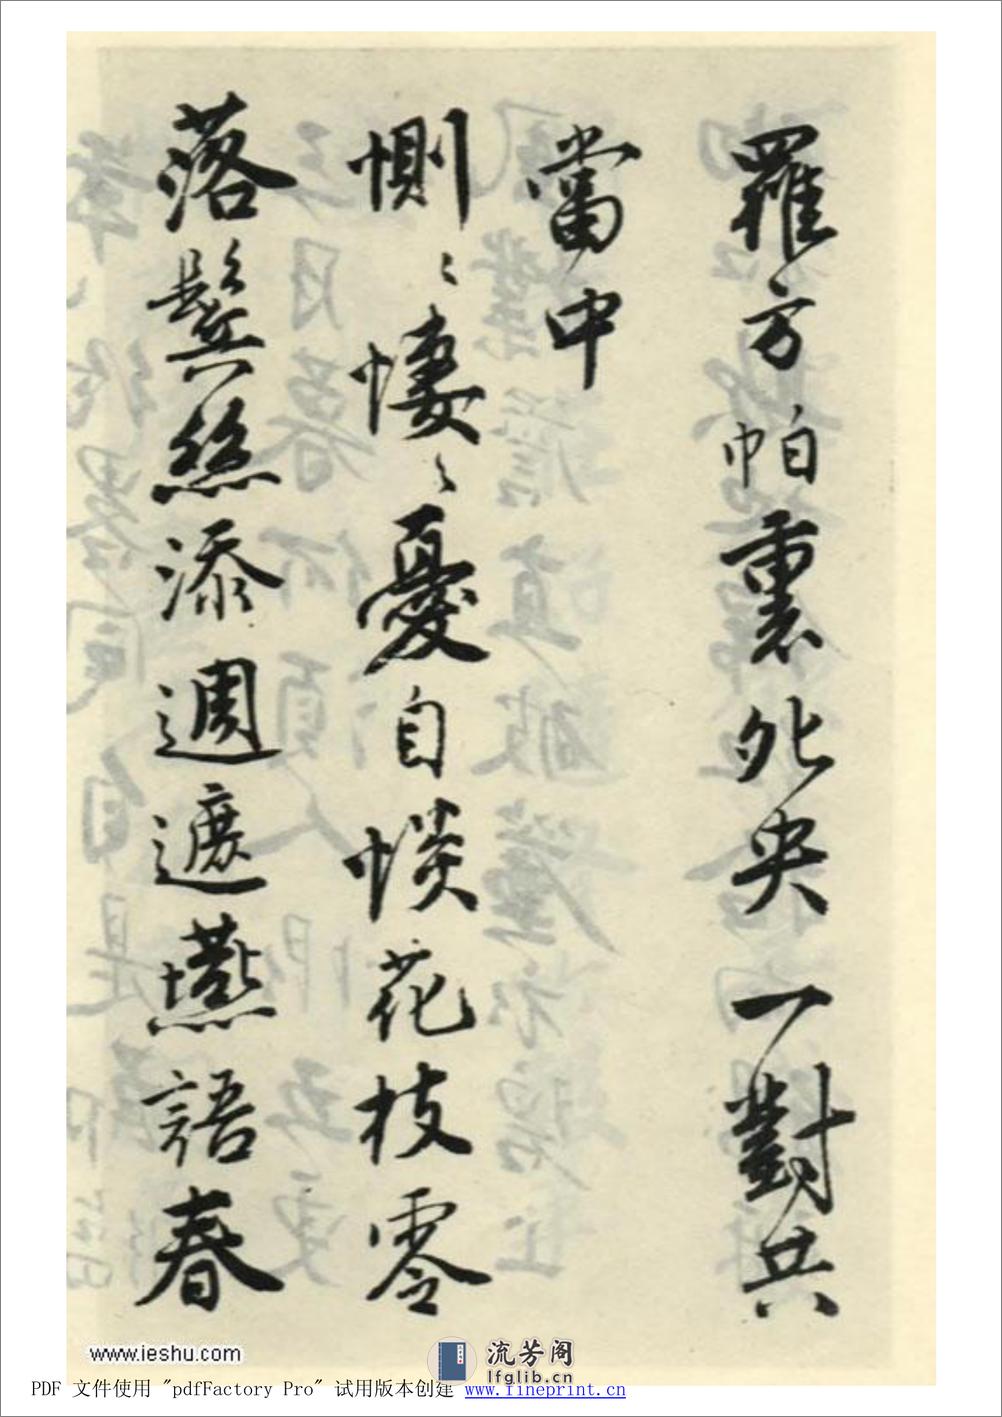 羅方帕裹死央一對共
當中
惻〻悽〻憂自惔花枝零
落鬓絲添週遮燕語春
www.ieshu.com
流芳阁
lfglib.cn
PDF 文件使用 "pdfFactory Pro" 试用版本创建 www.fineprint.cn